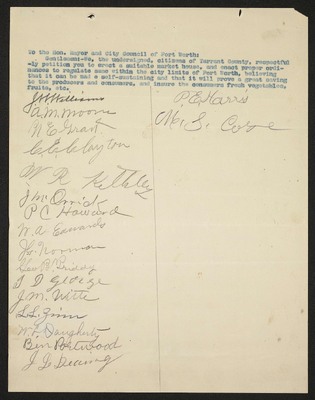 To the Hon. Mayor and City Council of Fort Worth:
Gentlemen-We, the undersigned, citizens of Tarrant County, respectful
-ly petition you to erect a suitable market house, and enact proper ordi-
nances to regulate same within the city limits of Fort Worth, believing
that it can be had a self-sustaining and that it will prove a great saving
to the producers and consumers, and insure the consumers fresh vegetables,
fruits, etc.
J W Williams
A. M. Moore
W E Grant
C E Clayton
W R
J Mc
P C Howard
W. A Edwards
J. C. Norman
Geo
J D George
J. M. Witte
L. L. Zinn
W. L. Daugherty
Ben Porterwood
J. L.
P. E Harris
M. S. Cope